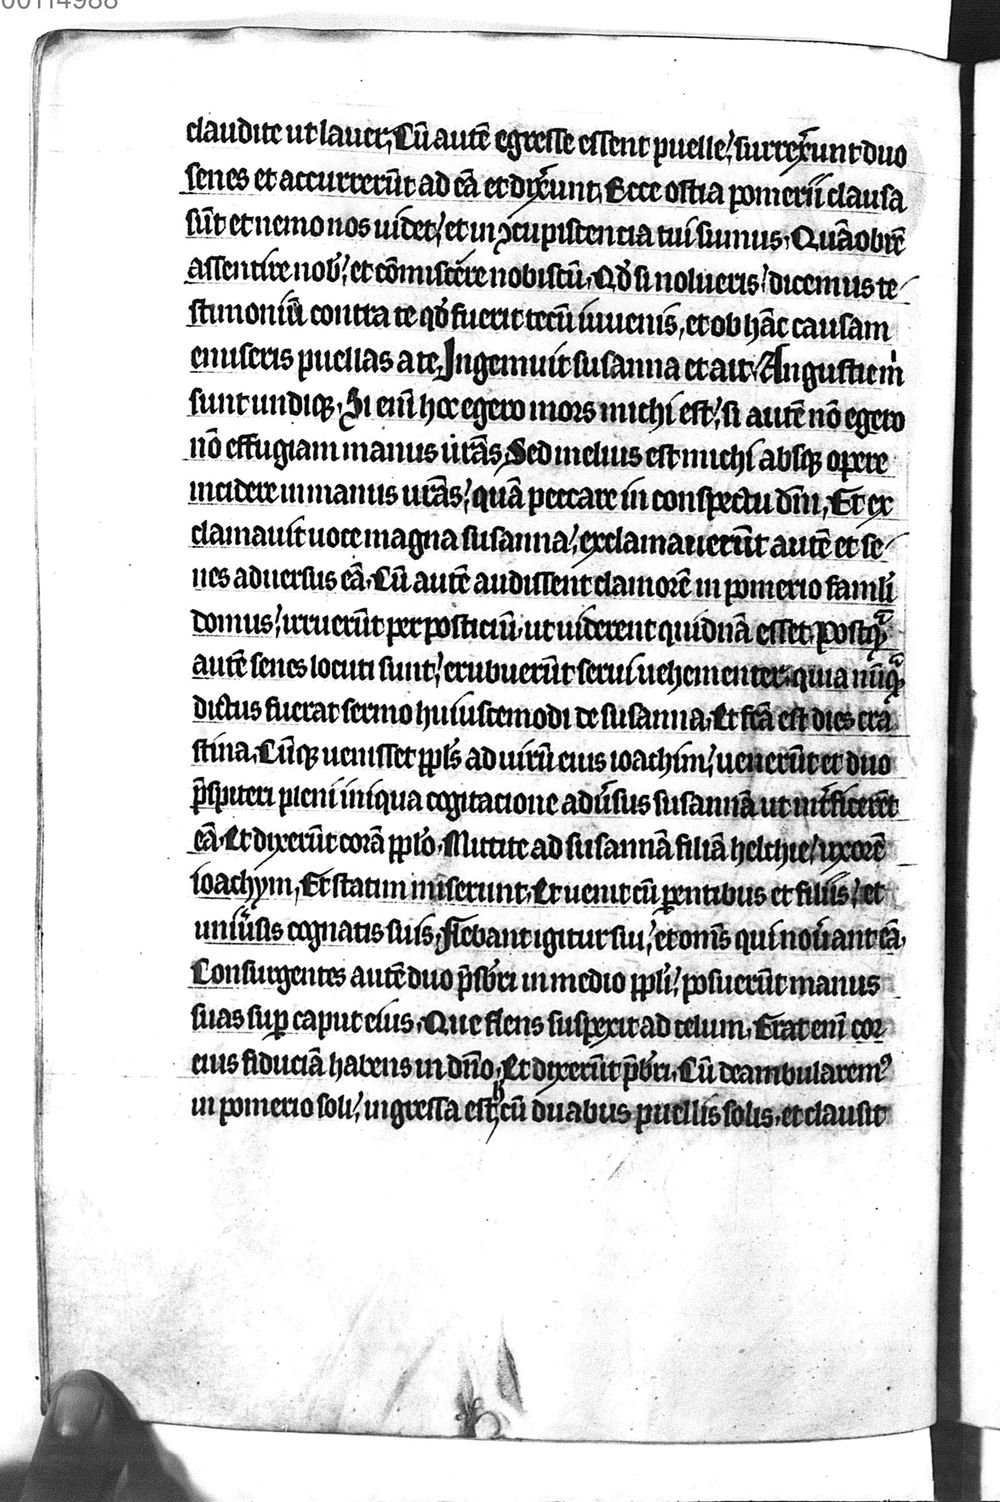 00114988
claudite ut lauer, Cū autē egresse essent puelle, surrexerunt duo
senes et accurrerūt ad eā et dixerunt, Ecce ostia pomerii clausa
sūt et nemo nos uidet, et in ↄcupiscencia tui sumus, Quāobrē
assentire nob, et cōmiscere nobiscū, Qđ si nolueris, dicemus te
stimoniū contra te qđ fuerit tecū iuuenis, et ob hāc causam
emiseris puellas a te, Ingemuit susanna et ait, Angustie m
sunt undiqꝫ, Si enī hoc egero mors michi est, si autē nō egero
nō effugiam manus ur̄as, Sed melius est michi absqꝫ opere
incidere in manus ur̄as, quā peccare in conspectu dn̄i, Et ex
clamauit uoce magna susanna, exclamauerūt autē et se
nes aduersus eā, Cū autē audissent clamorē in pomerio famli
domus, irruerūt per posticiū, ut uiderent quidnā esset, Postqꝫ
autē senes locuti sunt, erubuerūt serui uehementer, quia nūqꝫ
dictus fuerat sermo huiuscemodi de susanna, Et fc̄a est dies cra
stina, Cūqꝫ uenisset ppl̄s ad uirū eius ioachim, uenerūt et duo
p̄sbiteri pleni iniqua cogitacione aduersus susannā ut int̄ficerēt
eā, Et dixerūt corā pplo, Mittite ad susannā filiā helchie, uxorē
ioachym, Et statim miserunt, Et uenit cū ꝑentibus et filiis, et
uniu̇sis cognatis suis, Flebant igitur sui, et om̄s qui nou̇ant eā,
Consurgentes autē duo p̄sbr̄i in medio ppl̄i, posuerūt manus
suas suꝑ caput eius, Que flens suspexit ad celum, Erat enī cor
eius fiduciā habens in dn̄o, Et dixerūt p̄sbr̄i, Cū deambularem⁹
in pomerio soli, ingressa est h̄ cū duabus puellis solis, et clausit